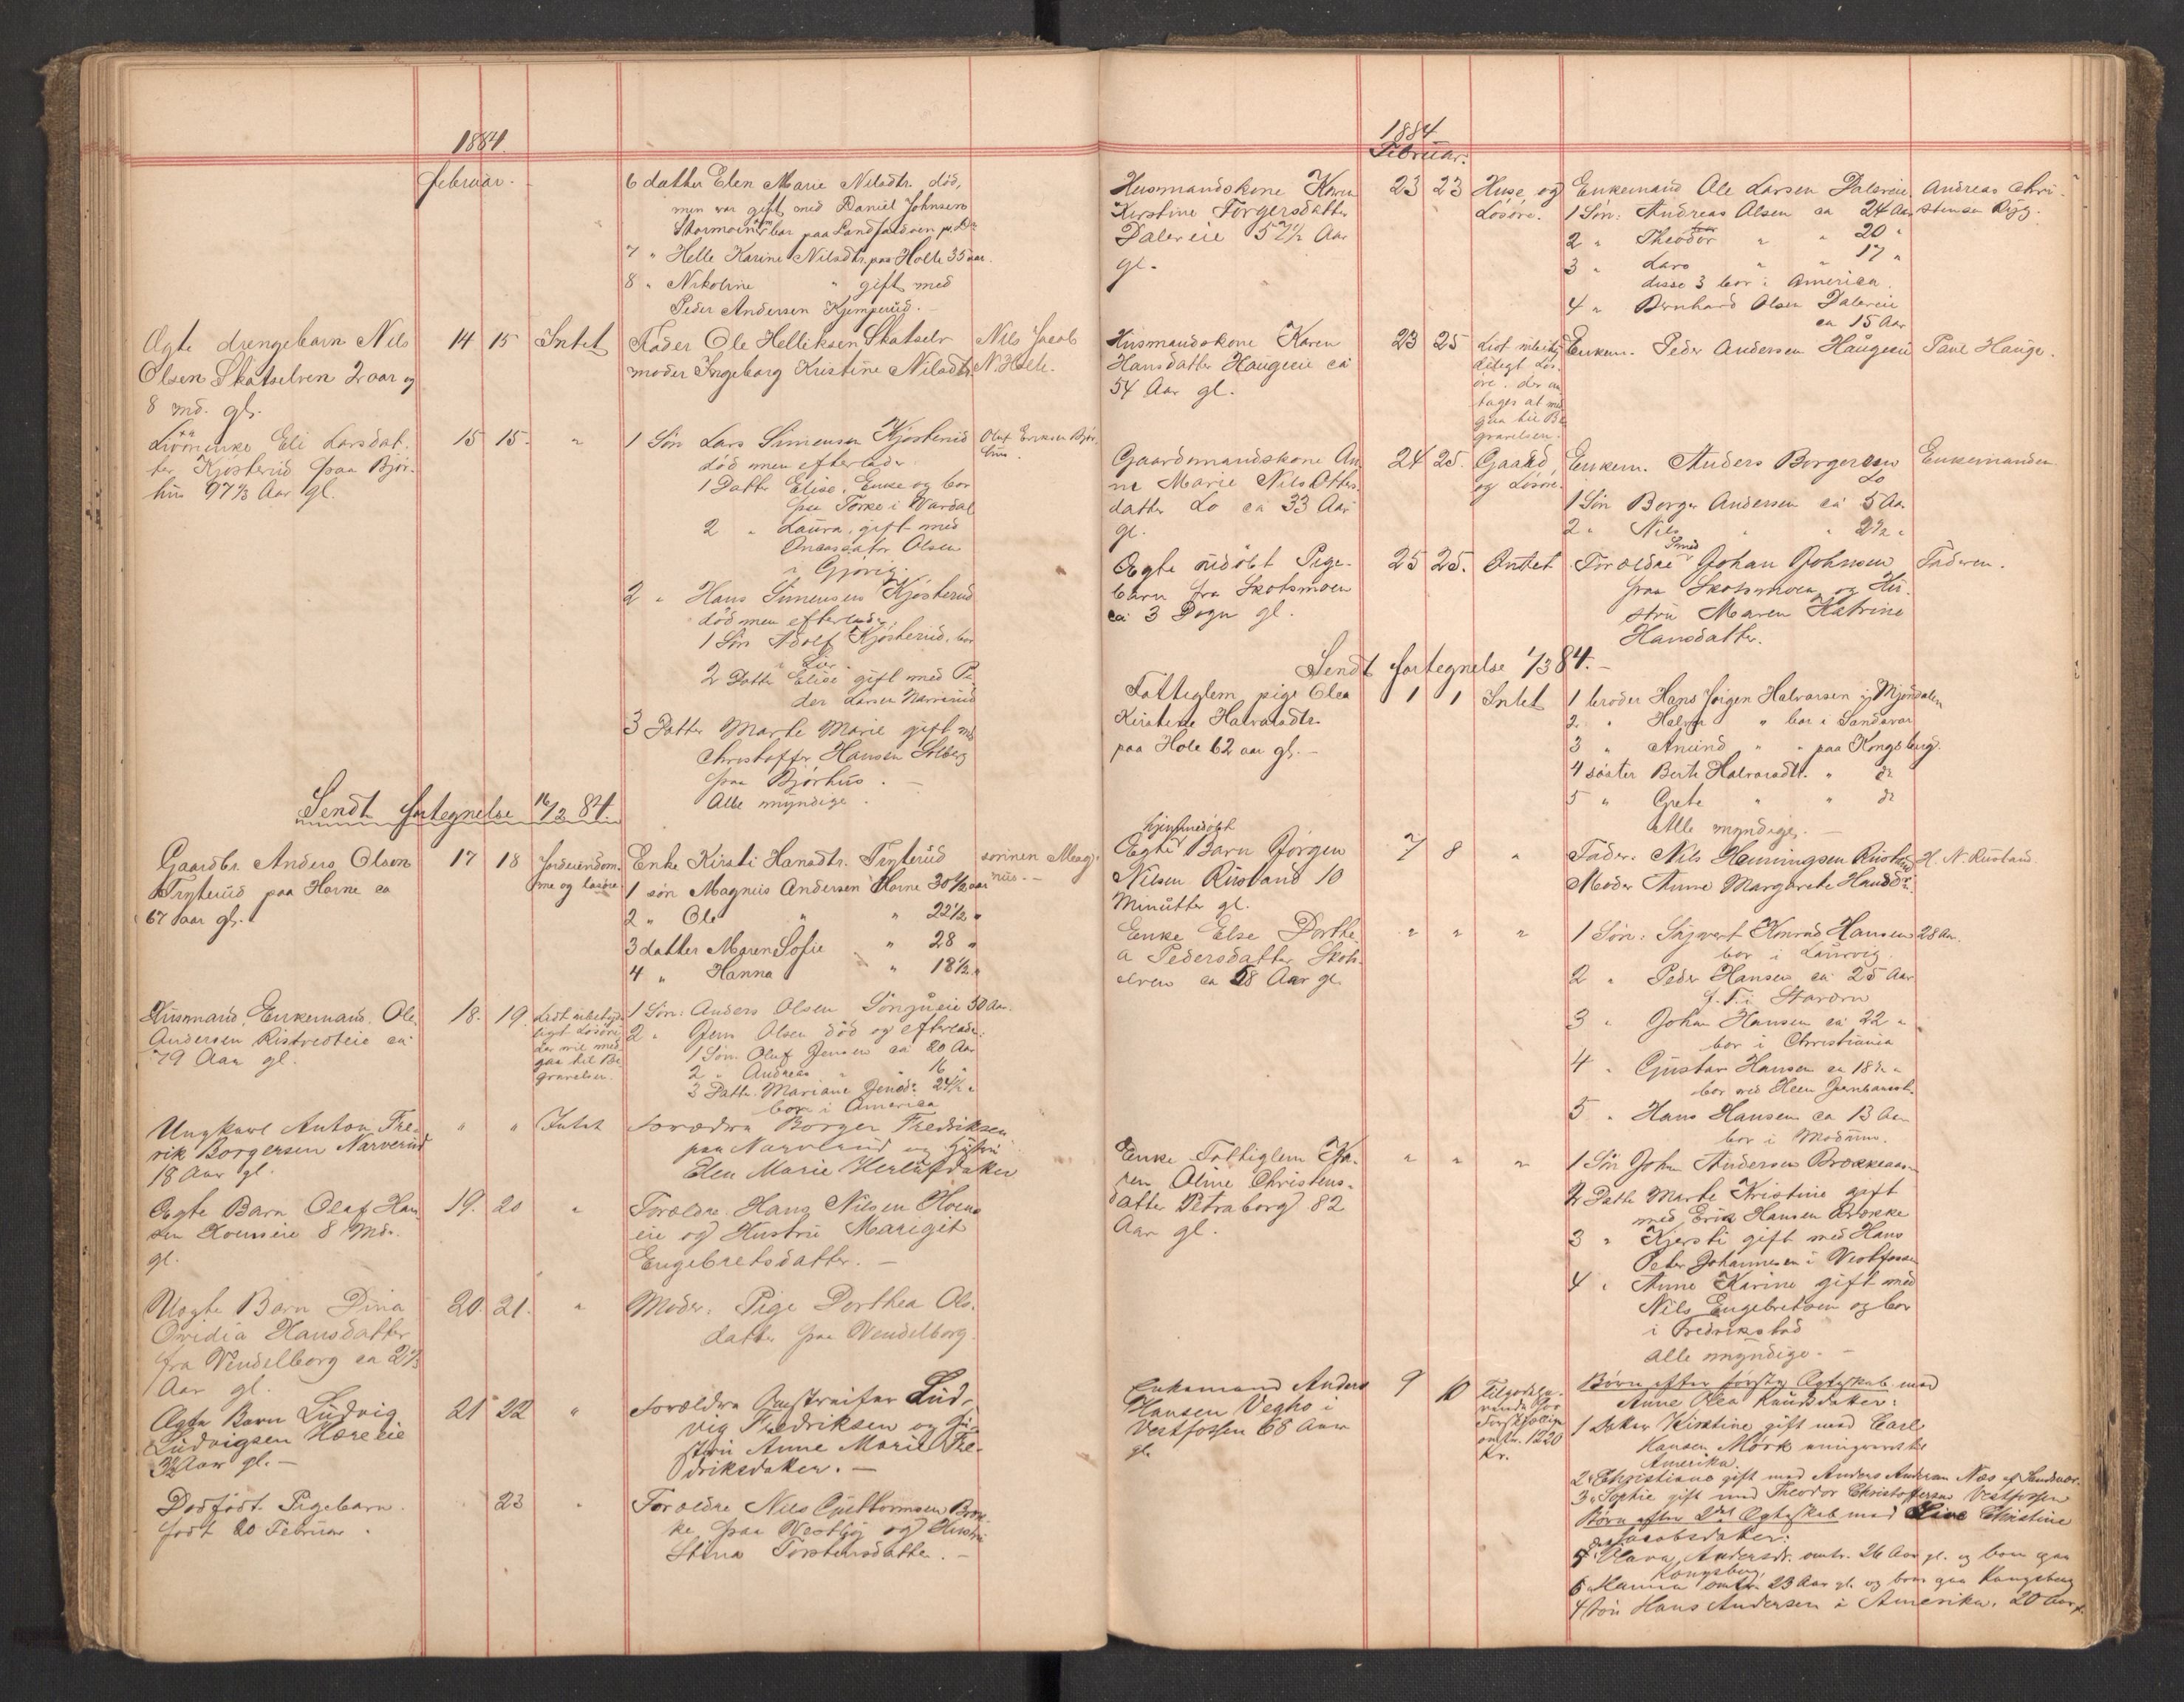 1884.
Februar.
6 datter Elen Marie Nilsdtr. død,
men var gift med Daniel Johnsen
Stormoen, bor paa Landfaldøen pr. Dr.
7 " Helle Karine Nilsdtr. paa Holte 35 aar.
8 " Nikoline " gift med
Peder Andersen Kjemperud.
Ægte drengebarn Nils 14 15 Intet Fader Ole Helliksen Skotselv Nils Jacob
Olsen Skotselven 2 aar og moder Ingeborg Kristine Nilsdtr. N. Holte.
8 md. gl.
enke Eli Larsdat- 15 15. " 1 Søn Lars Simensen Kjøsterud Oluf Eriksen Bjør-
ter Kjøsterud paa Bjør- død men efterlader hus.
hus 97½ Aar gl. 1 Datter Elise, Enke og bor
paa Torke i Wardal
2 " Laura, gift med
Olsen
i Gjøvig.
2 " Hans Simensen Kjøsterud
død men efterlader
1 Søn Adolf Kjøsterud, bor
i Lier.
2 Datter Elise gift med Pe-
der Larsen Narverud
3 Datter Marte Marie gift med
Christoffer Hansen Solberg
paa Bjørhus.
Alle myndige.
Sendt fortegnelse 16/2 84.
Gaardbr. Anders Olsen 17 18 Jordeiendom- Enke Kirsti Hansdtr. Tryterud sønnen Mag-
Tryterud paa Horne ca me og løsøre 1 søn Magnus Andersen Horne 30½ aar nus.
67 aar gl. 2 " Ole " " 22½ "
3 datter Maren Sofie " 28 "
4 " Hanna " 18½ "
Husmand, Enkemand. Ole 18. 19. Lidt ubetyde- 1 Søn: Anders Olsen 50 Aar.
Andersen Ristvedteie ca ligt Løsøre, 2 " Jens Olsen død og efterlader:
79 Aar gl. der vil med- 1 Søn. Oluf Jensen ca 20 Aar
gaa til Be- 2 " Andreas " 16 "
gravelsen. 3 Datter. Mariane Jensdr. 24½ "
bor i America
Ungkarl Anton Fre- " " Intet Forældre Borger Fredriksen
rik Borgersen Narverud paa Narverud og Hustru
18 Aar gl. Elen Marie Herlufdatter
Ægte Barn Olaf Han- 19. 20 " Forældre. Hans Nilsen Hoens-
sen Hoenseie 8 Mdr. eie og Hustru Maregit
gl. Engebretsdatter.
Uægte Barn Dina 20. 21. " Moder: Pige Dorthea Ols-
Ovidia Hansdatter datter paa Wendelborg.
fra Vendelborg ca 2½
Aar gl.
Ægte Barn Ludvig 21 22 " Forældre Opstraifer Lud-
Ludvigsen Horneie vig Fredriksen og Hu-
3½ Aar gl. stru Anne Marie Fre-
driksdatter.
Dødfødt Pigebarn. 23 " Forældre Nils Guttormsen Bræk-
født 20 Februar. ke paa Vestby og Hustru
Stina Torstensdatter.
1884
Februar.
Husmandskone Karen 23 23 Huse og Enkemand Ole Larsen Dalereie Andreas Chri-
Kirstine Torgersdatter Løsøre. 1 Søn: Andreas Olsen ca 24 Aar stensen Rygg.
Dalereie 57½ Aar 2 " Theodor " " 20 "
gl. 3 " Lars " " 17 "
disse 3 bor i America.
4 " Bernhard Olsen Dalereie
ca 15 Aar
Husmandskone Karen 23 25 Lidt ubetyde- Enkem. Peder Andersen Haugeeie Paul Hauge.
Hansdatter Haugeeie ca deligt Løs-
54 Aar gl. øre. der an-
tages at med-
gaa til Be-
gravelsen.
Gaardmandskone An- 24 25. Gaard Enkem. Anders Borgersen Enkemanden
ne Marie Nils Otters- og Løsøre. Lo
datter Lo ca 33 Aar 1 Søn Borger Andersen ca 5 Aar
gl. 2 " Nils " " 2½ "
Ægte udøbt Pige- 25 25. Intet Forældre Smed Johan Johnsen Faderen.
barn fra Skotsmoen paa Skotsmoen og Hu-
ca 3 Døgn gl. stru Maren Katrine
Hansdatter.
Sendt fortegnelse 1/3 84.
Fattiglem pige Olea 1 1 Intet 1 broder Hans Jørgen Halvorsen i Mjøndalen
Kirstine Halvorsdtr. 2 " Halvor " bor i Sandsvær
paa Hole 62 aar gl. 3 " Amund " " paa Kongsberg.
4 søster Berte Halvorsdtr. " do
5 " Grete " " do
Alle myndige.
hjemmedøbt
Ægte Barn Jørgen 7 8 " Fader. Nils Henningsen Rustand H. N. Rustand
Nilsen Rustand 10 Moder Anne Margarete Hansdr.
Minutter gl.
Enke Else Dorthe- " " " 1 Søn: Sigvart Konrad Hansen 28 Aar.
a Pedersdatter Skots- bor i Laurvig.
elven ca 58 Aar gl. 2 " Peder Hansen ca 25 Aar
f. T. i Stavern
3 " Johan Hansen ca 22 "
bor i Christiania
4 " Gustav Hansen ca 18½ "
bor ved Hoen Jernbanest.
5 " Hans Hansen ca 13 Aar
bor i Modum.
Enke Fattiglem Ka- " " " 1 Søn Johan Andersen Brækkeaasen
ren Oline Christens- 2 Datter Marte Kristine gift
datter Petraborg 82 med Erik Hansen Brække
Aar gl. 3 " Kjersti gift med Hans
Peter Johannesen i Vestfossen
4 " Anne Karine gift med
Nils Engebretsen og bor
i Fredrikstad
Alle myndige.
Enkemand Anders 9 10 Tilgodeha- Børn efter første Ægteskab med
Hansen Vegho i vende for Anne Olea Knudsdatter:
Vestfossen 68 Aar omtr. 1220 1 Datter Kirstine gift med Carl
gl. Kr. Hansen Mørk til
Amerika.
2 " Christiane gift med Anders Andersen Næs af Sandsvær.
3 " Sophie gift med Theodor Christoffersen Vestfossen
Børn efter 2det Ægteskab med Live Christine
Jacobsdatter:
5 Clara Andersdr. omtr. 26 Aar gl. og bor paa
Kongsberg,
6 " Hanna omtr. 23 Aar gl. og bor paa Kongsberg
4 Søn Hans Andersen i Amerika, 20 Aar gl.